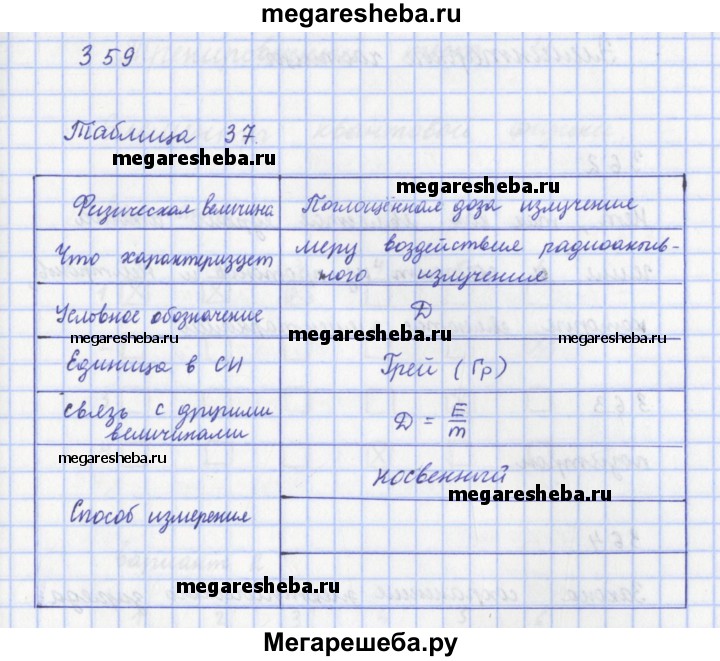 megaresheba.ru
359
Таблица 37.
megaresheba.ru
megaresheba.ru
Физическая величина Поглощённая доза излучение
Что характеризует меру воздействия радиоактив-
ного излучение
Условное обозначение D
megaresheba.ru megaresheba.ru megaresheba.ru
Единица в СИ Грей (Гр)
связь с другими
величинами D = E/m
megaresheba.ru
косвенный
megaresheba.ru
Способ измерения
megaresheba.ru
Мегарешеба.ру